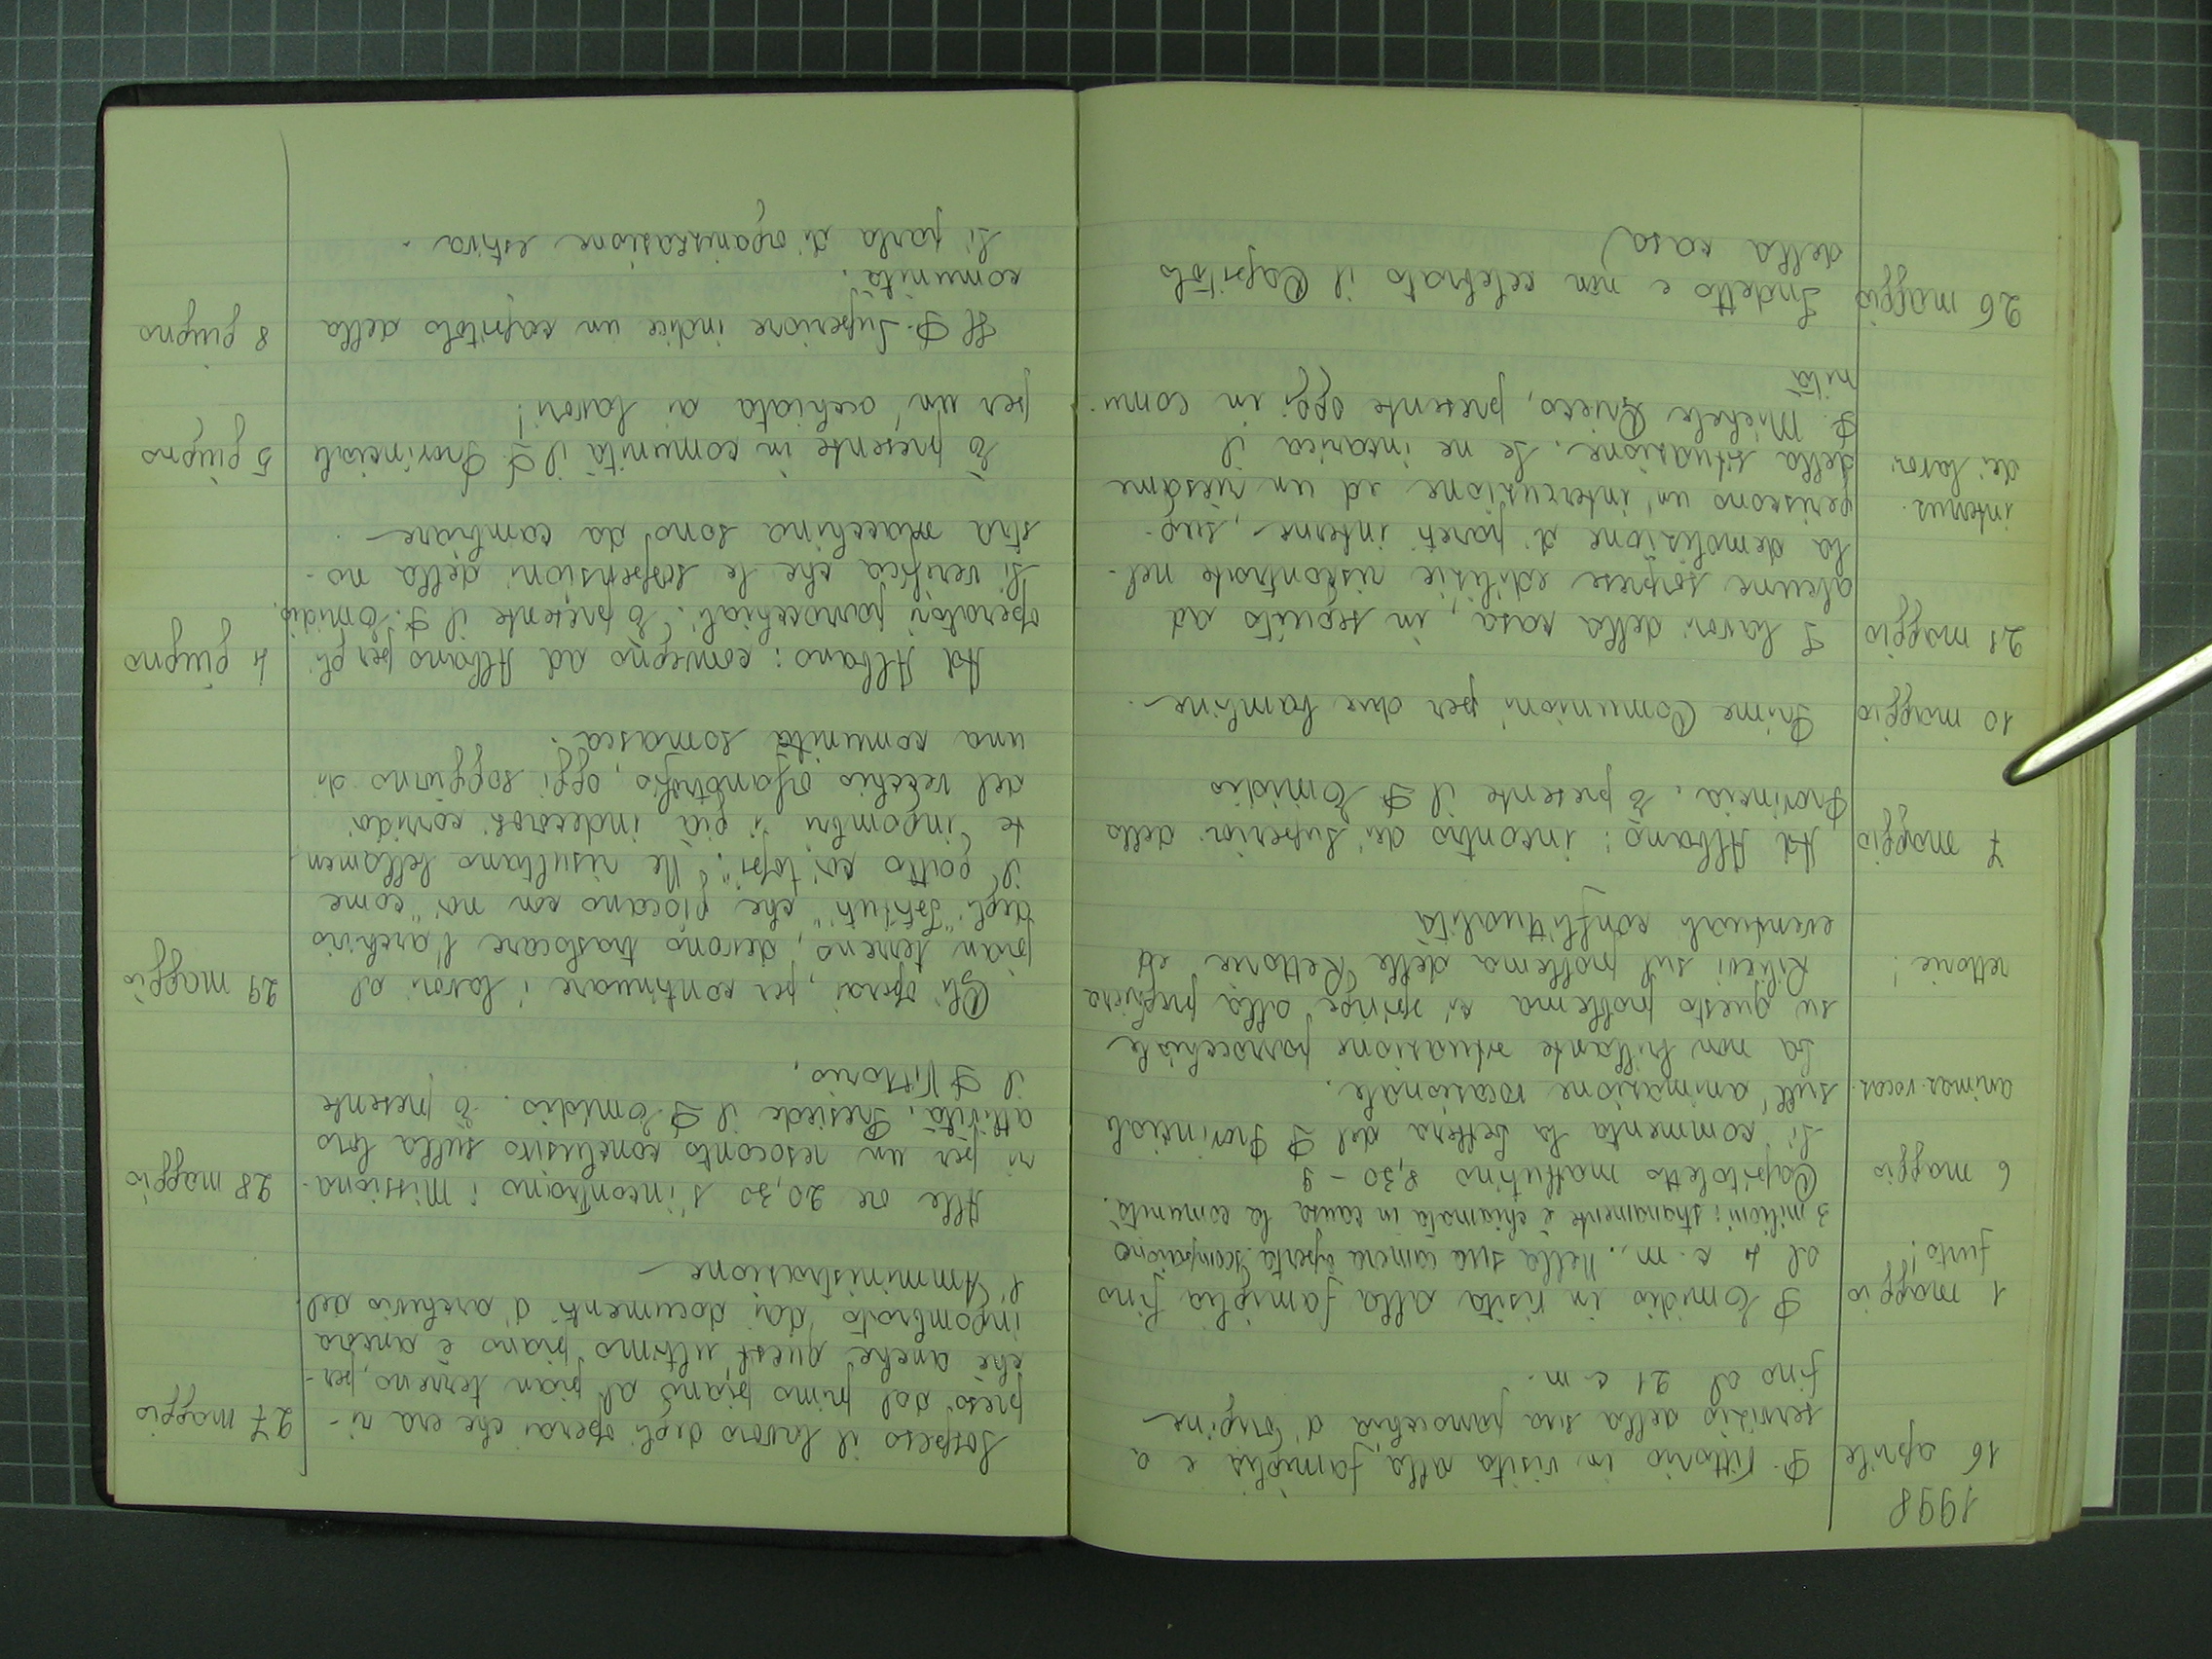 1998
16 aprile P. Vittorio in visita alla famiglia e a
servizio della sua parrocchia d'origine
fino al 21 c.m.
1 maggio P Emidio in visita alla famiglia fino
furto! al 4 c.m.. Nella sua camera aperta scompaiono
3 milioni: stranamente è chiamata in causa la comunità.
6 maggio Capitoletto mattutino 8,30 - 9
Si commenta la lettera del P Provinciale
animaz. vocaz. sull'animazione vocazionale.
La non brillante situazione parrocchiale
su questo problema ci spinge alla preghiera
rettorie! Rilievi sul problema delle Rettorie ed
eventuali conflittualità
7 maggio Ad Albano: incontro dei Superiori della
Provincia. È presente il P Emidio
10 maggio Prime Comunioni per due bambine.
21 maggio I lavori della casa, in seguito ad
alcune sorprese edilizie riscontrate nel-
la demolizione di pareti interne, sug-
interruz. geriscono un'interruzione ed un riesame
dei lavori della situazione. Se ne incarica il
P. Michele Grieco, presente oggi in comu-
nità
26 maggio Indetto e non celebrato il Capitolo
della casa
27 maggio Sospeso il lavoro degli operai che era ri-
preso dal primo piano al pian terreno, per-
chè anche quest'ultimo piano è ancora
ingombrato dai documenti d'archivio del-
l'Amministrazione
28 maggio Alle ore 20,30 s'incontrano i Missiona-
ri per un resoconto conclusivo sulla loro
attività. Presiede il P Emidio. È presente
il P Vittorio.
29 maggio Gli operai, per continuare i lavori al
pian terreno, devono traslocare l'archivio
degli "Istituti" che "giocano con noi" come
il gatto coi topi". Ne risultano bellamen
te ingombri i già indecorosi corridoi
del vecchio orfanotrofio, oggi soggiorno di
una comunità somasca.
4 giugno Ad Albano: convegno ad Albano per gli
operatori parrocchiali. È presente il P. Emidio.
Si verifica che le sospensioni della no-
stra macchina sono da cambiare.
5 giugno È presente in comunità il P. Provinciale
per un'occhiata ai lavori!
8 giugno Il P. Superiore indice un capitolo della
comunità.
Si parla di organizzazione estiva.